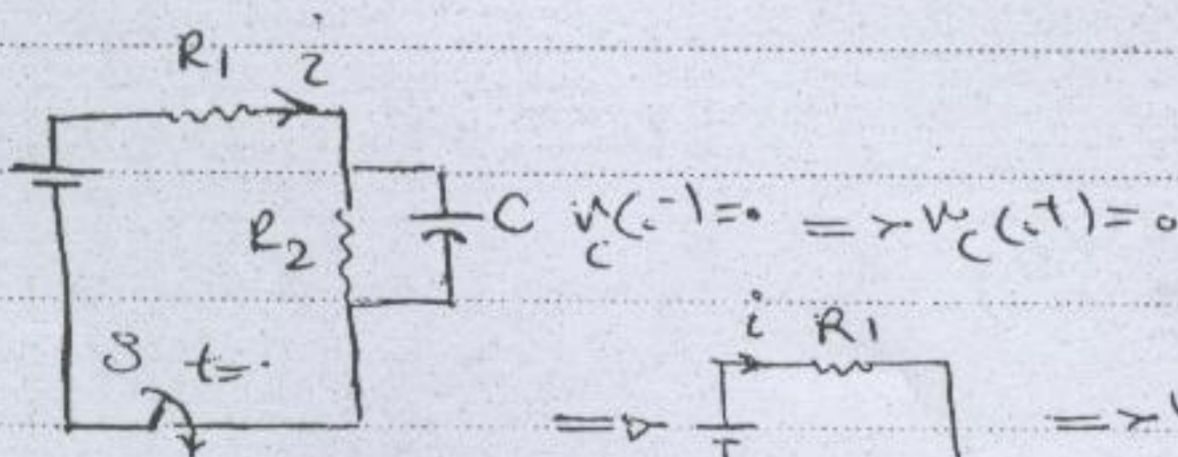 R1 i
R2 C v_c(0^-)=0 => v_c(0^+)=0
S t=0
i R1
=> =>